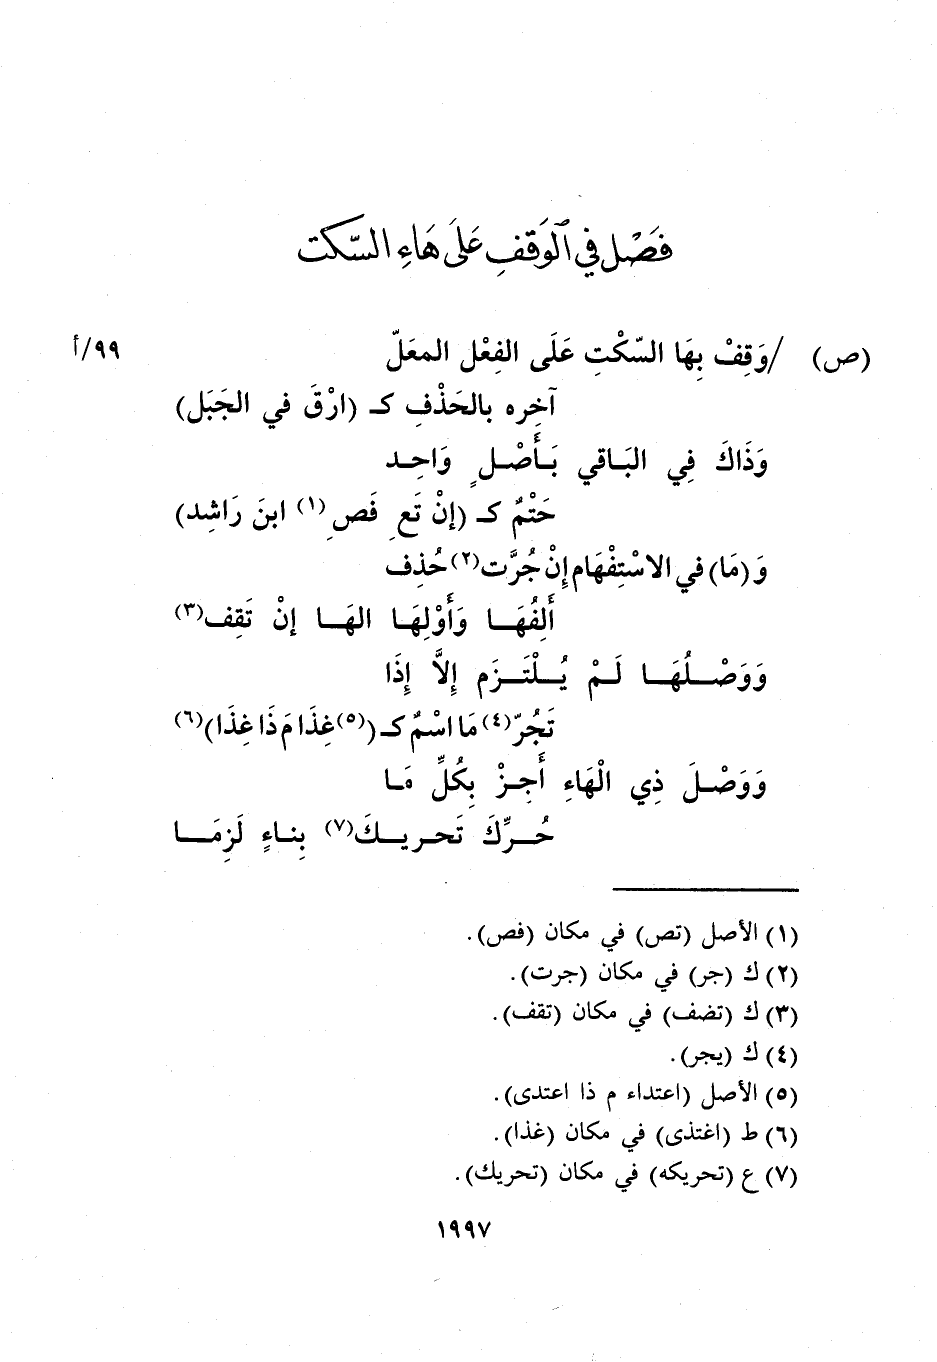 فَصْل في الوَقفِ عَلَى هَاءِ السّكت
(ص) /وَقِفْ بِهَا السّكْتِ عَلَى الفِعْل المعَلّ ٩٩/أ
آخِره بالحَذْفِ كـ (ارْقَ في الجَبَل)
وَذَاكَ فِي البَاقي بَأَصْلٍ وَاحِد
حَتْمٌ كـ (إنْ تَعِ فَصِ(١) ابنَ رَاشِد)
وَ(مَا) في الاسْتِفْهَام إنْ جُرَّت(٢) حُذِف
أَلِفُهَا وَأَوْلِهَا الهَا إنْ تَقِف(٣)
وَوَصْلُهَا لَمْ يُلْتَزَم إلاَّ إذَا
تَجُرّ(٤) مَا اسْمٌ كـ (٥)(غِذَا مَ ذَا غِذَا)(٦)
وَوَصْلَ ذِي الْهَاءِ أَجِزْ بِكُلِّ مَا
حُرِّكَ تَحريكَ(٧) بِناءٍ لَزِمَا
(١) الأصل (تص) في مكان (فص).
(٢) ك (جر) في مكان (جرت).
(٣) ك (تضف) في مكان (تقف).
(٤) ك (يجر).
(٥) الأصل (اعتداء م ذا اعتدى).
(٦) ط (اغتذى) في مكان (غذا).
(٧) ع (تحريكه) في مكان (تحريك).
١٩٩٧